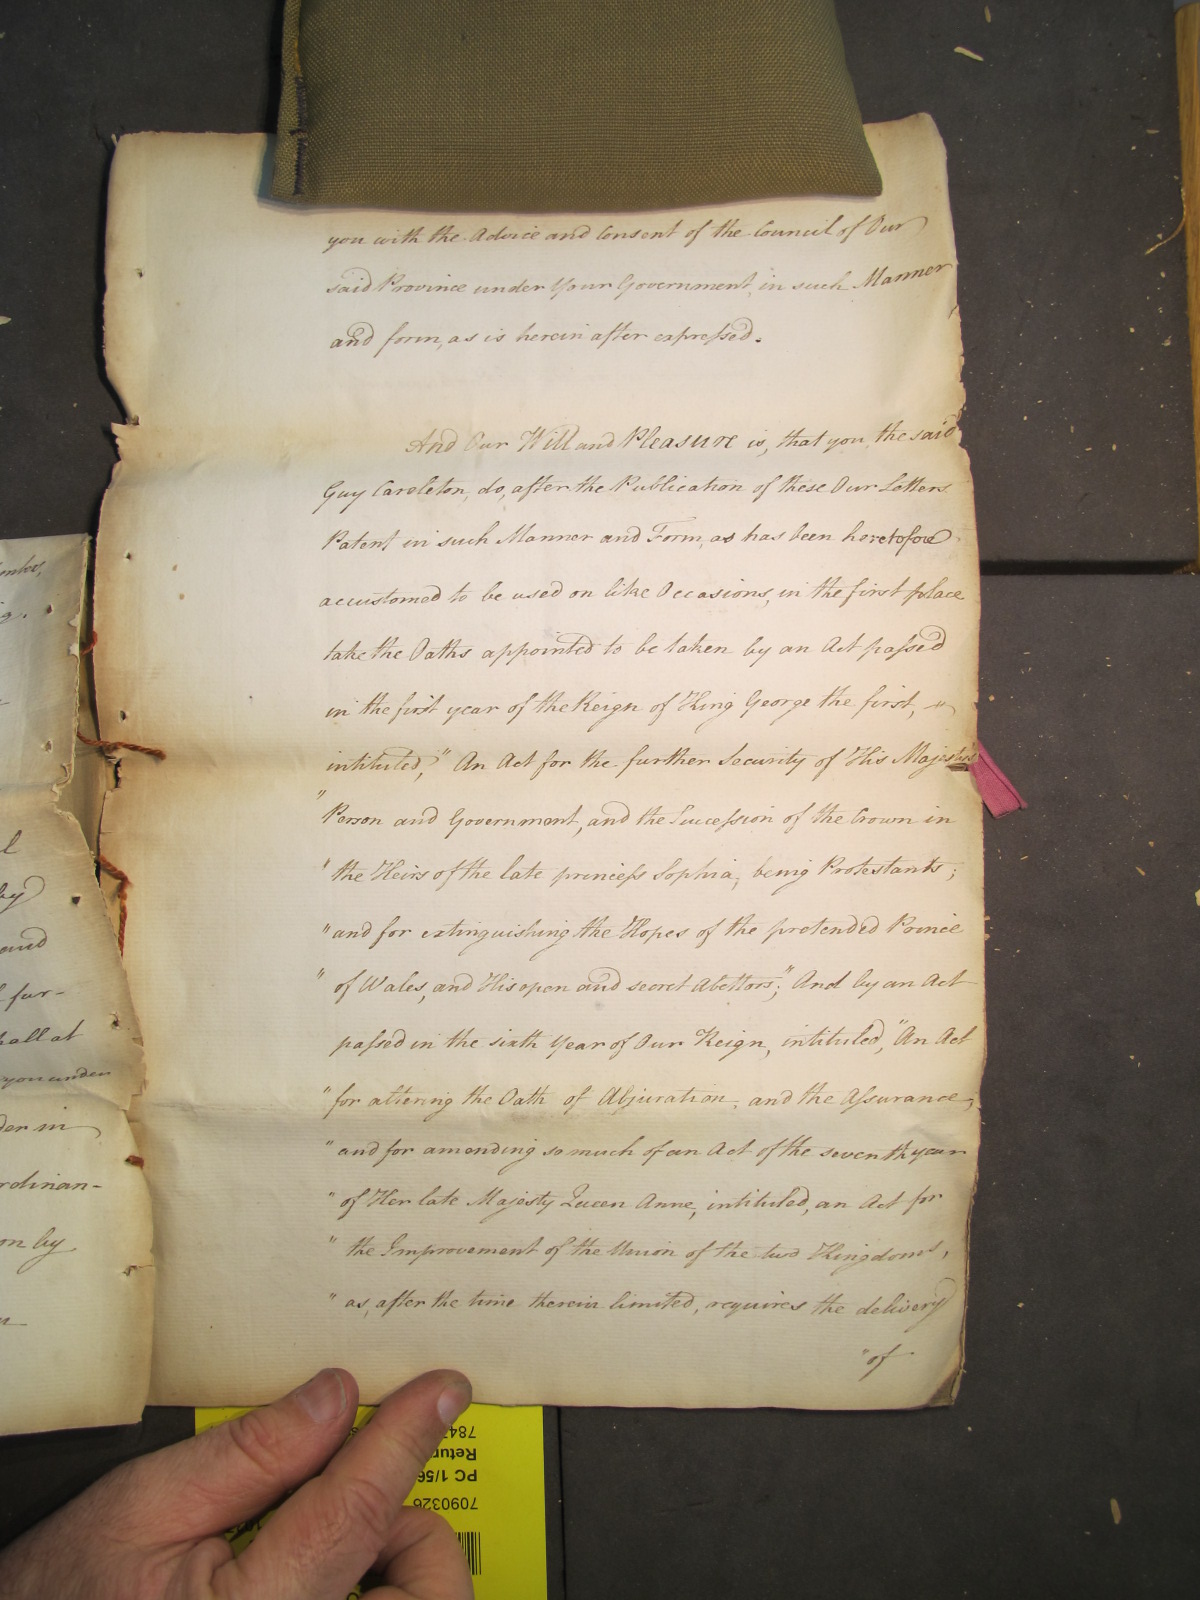 you with the Advice and Consent of the Council of Our
said Province under Your Government, in such Manner
and form, as is herein after expressed.
And Our Will and Pleasure is, that you the said
Guy Carleton, do, after the Publication of these Our Letters
Patent in such Manner and Form, as has been heretofore
accustomed to be used on like Occasions, in the first place
take the Oaths appointed to be taken by an Act passed
in the first year of the Reign of King George the first,
intituled, "An Act for the further Security of His Majesty's
" Person and Government, and the Succession of the Crown in
" the Heirs of the late princess Sophia, being Protestants;
" and for extinguishing the Hopes of the pretended Prince
" of Wales, and His open and secret Abettors;" And by an Act
passed in the sixth Year of Our Reign, intituled, "An Act
" for altering the Oath of Abjuration, and the Assurance,
" and for amending so much of an Act of the seventh year
" of Her late Majesty Queen Anne, intituled, an Act for
" the Improvement of the Union of the two Kingdoms,
" as, after the time therein limited, requires the delivery
" of
l
by
and
fur-
hall at
you under
der in
rdinan-
on by
7090326
PC 1/56
Retu
784